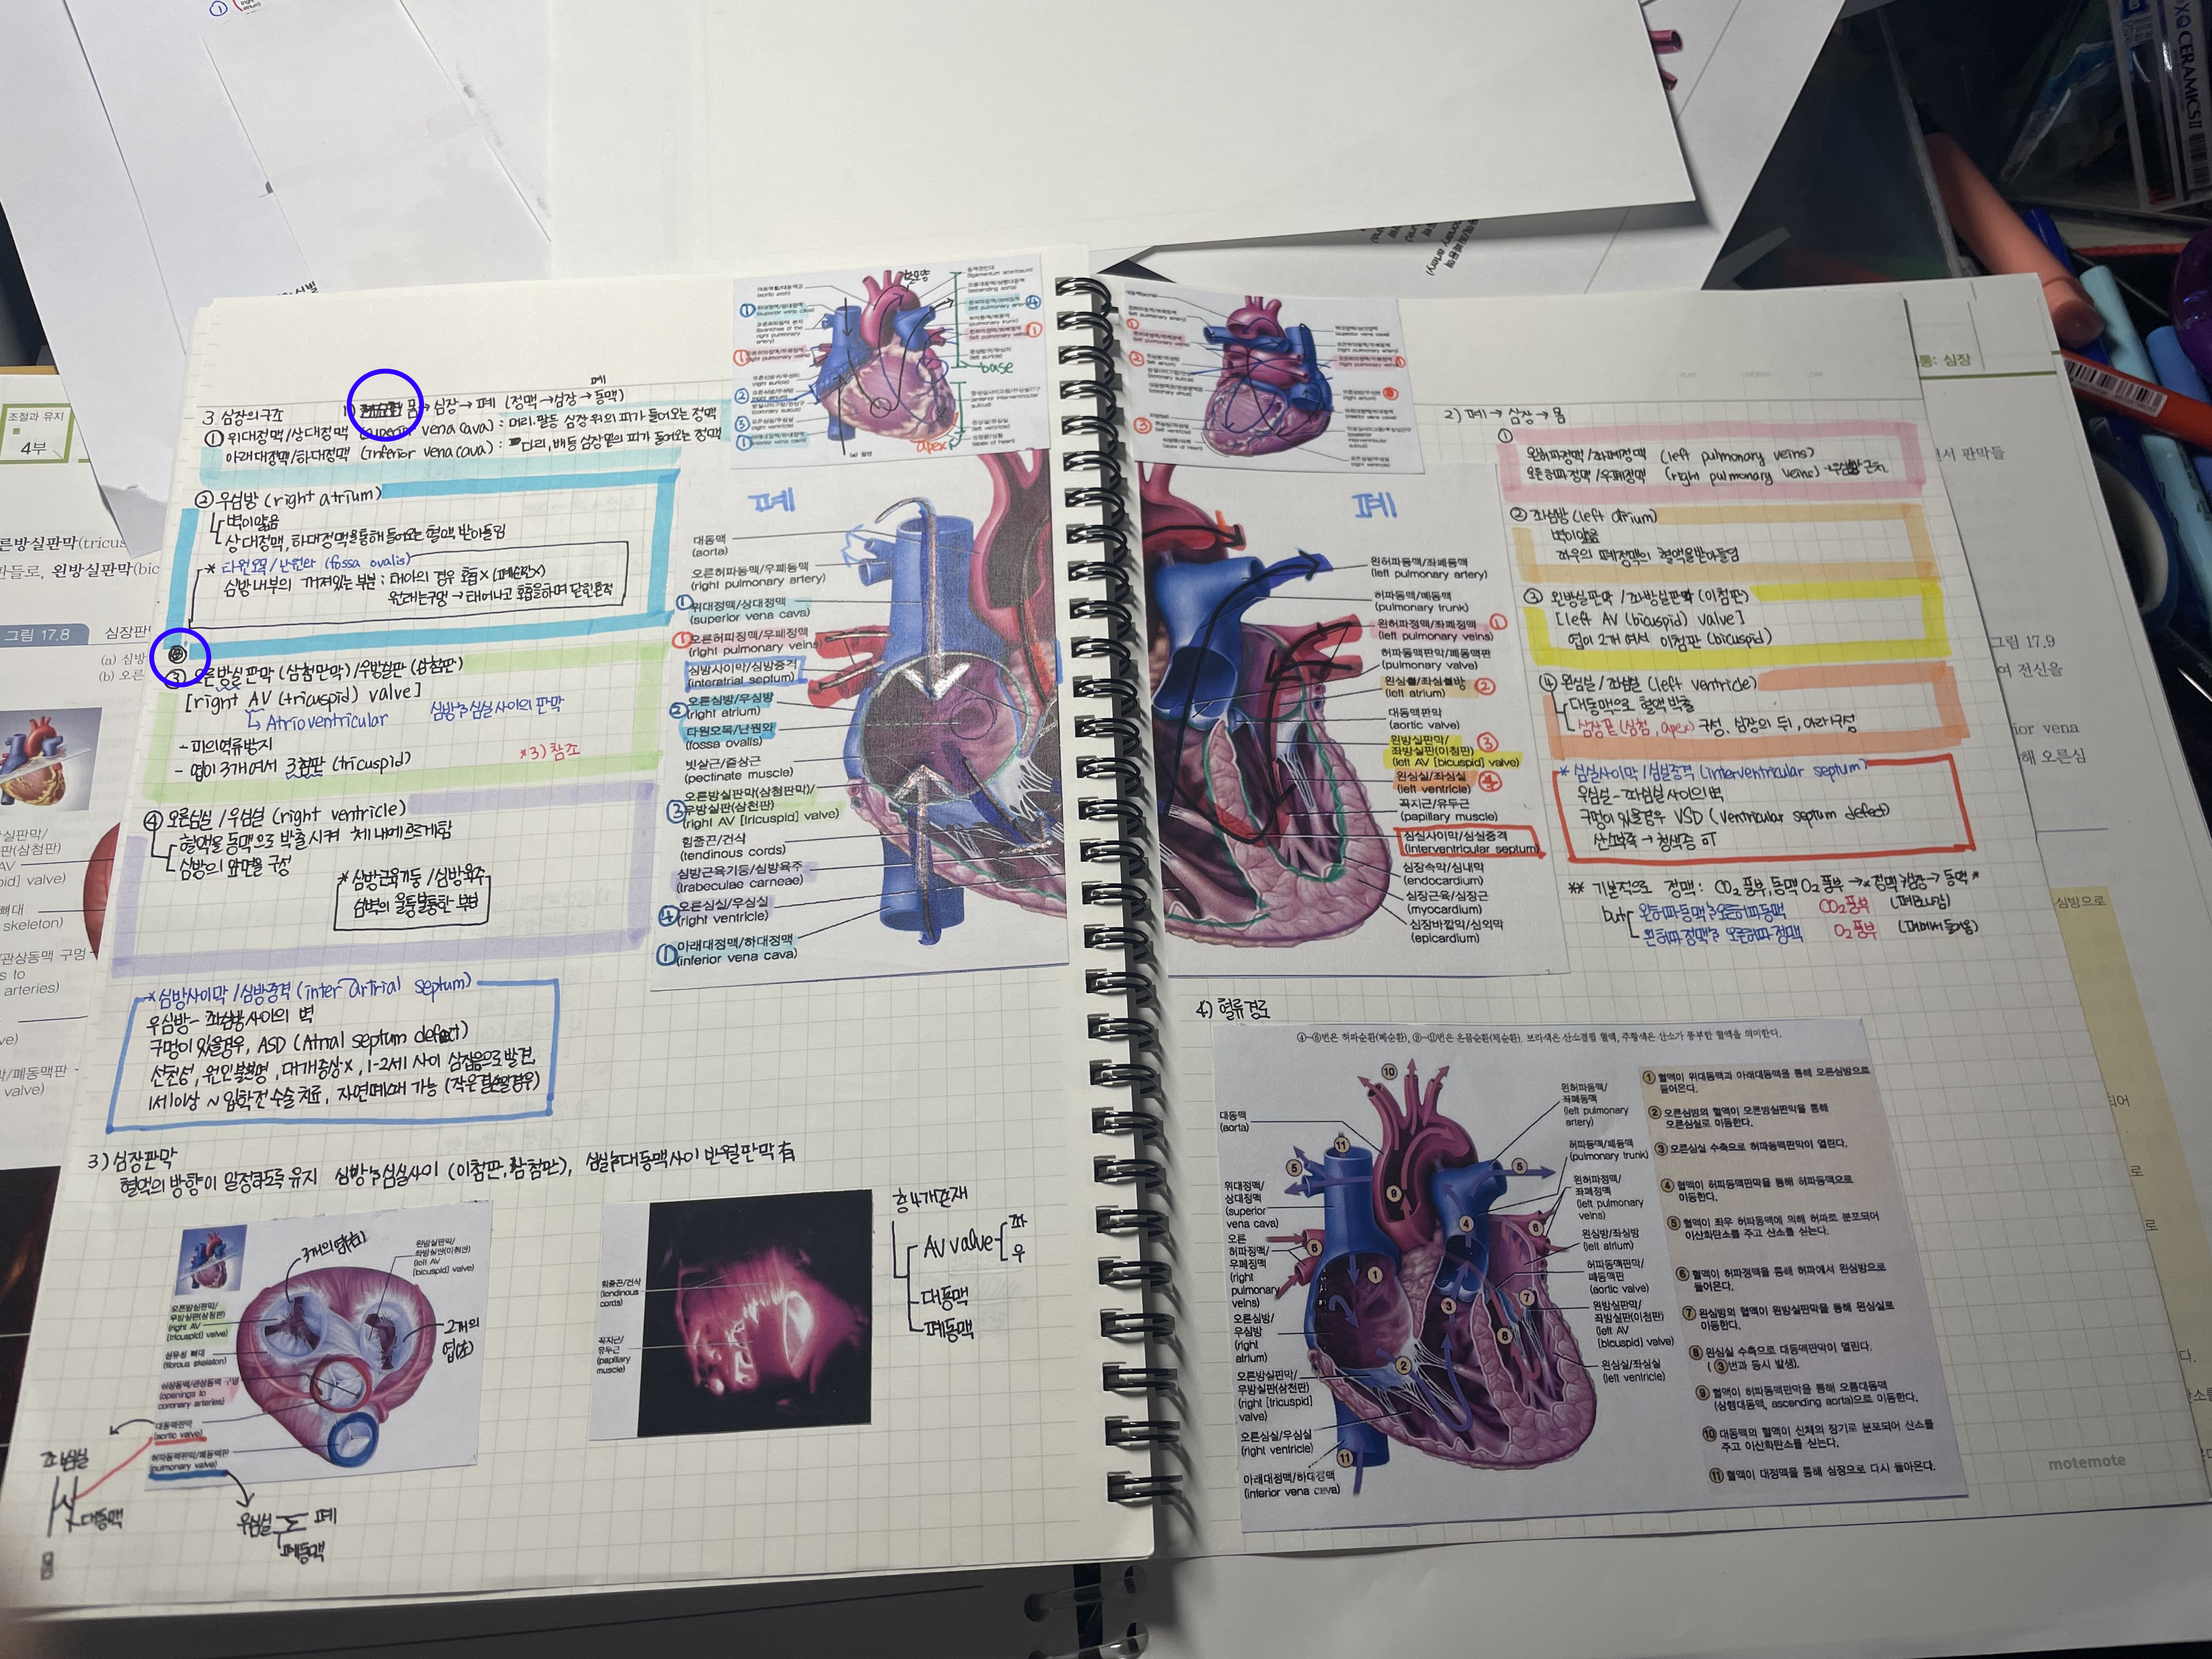 조절과 유지
4부
른방실판막(tricus
판들로, 왼방실판막(bic
그림 17.8
심장판
(a) 심방
(b) 오른
심실판막/
관(삼첨판)
AV
pid] valve)
뼈대
skeleton)
관상동맥 구멍
s to
arteries)
막/폐동맥판
valve)
3. 심장의구조
몸→심장→폐 (정맥→심장→동맥)
폐
① 위대정맥/상대정맥 (superior vena cava) : 머리.팔등 심장위의 피가 들어오는 정맥
아래대정맥/하대정맥 (inferior vena cava) : 다리, 배등 심장밑의 피가 들어오는 정맥
② 우심방 (right atrium)
벽이얇음
상대정맥, 하대정맥을통해 들어오는 혈액 받아들임
* 타원오목/난원와 (fossa ovalis)
심방내부의 꺼져있는 부분 ; 태아의 경우 호흡× (폐순환×)
원래는구멍 → 태어나고 호흡을하며 닫힌흔적
③ 오른방실판막 (삼첨판막)/우방실판 (삼첨판)
[right AV (tricuspid) valve]
↳ Atrioventricular
심방과 심실 사이의 판막
- 피의역류방지
- 엽이 3개여서 3첨판 (tricuspid)
*3) 참조
④ 오른심실/우심실 (right ventricle)
혈액을 동맥으로 박출시켜 체내에흐르게함
심방의 앞면을 구성
* 심방근육기둥/심방육주
심벽의 울퉁불퉁한 부분
*심방사이막/심방중격 (inter atrial septum)
우심방- 좌심방사이의 벽
구멍이 있을경우, ASD (Atrial septum defect)
선천성, 원인불분명, 대개증상×, 1-2세 사이 심잡음으로 발견,
1세이상 ~ 입학전 수술치료, 자연폐쇄 가능 (작은결손일경우)
3) 심장판막
혈액의 방향이 일정하도록 유지 심방과 심실사이 (이첨판, 삼첨판), 심실과대동맥사이 반월판막 有
3개의엽(첨)
왼방실판막/
좌방실판(이첨판)
(left AV
[bicuspid] valve)
오른방실판막/
우방실판(삼첨판)
(right AV
[tricuspid] valve)
섬유성 뼈대
(fibrous skeleton)
심장동맥/관상동맥 구멍
(openings to
coronary arteries)
대동맥판막
(aortic valve)
허파동맥판막/폐동맥판
(pulmonary valve)
2개의
엽(첨)
좌심실
대동맥
우심실
폐
폐동맥
힘줄끈/건삭
(tendinous
cords)
꼭지근/
유두근
(papillary
muscle)
총4개존재
AV valve
좌
우
대동맥
폐동맥
(aortic arch)
위대정맥/상대정맥
(superior vena cava)
(branches of the
right pulmonary
artery)
(right pulmonary veins)
(right auricle)
(right atrium)
(coronary sulcus)
(right ventricle)
(inferior vena cava)
(ligamentum arteriosum)
(ascending aorta)
(left pulmonary artery)
(pulmonary trunk)
(left pulmonary veins)
(left auricle)
base
(anterior interventricular
sulcus)
(left ventricle)
(apex of heart)
apex
폐
대동맥
(aorta)
오른허파동맥/우폐동맥
(right pulmonary artery)
① 위대정맥/상대정맥
(superior vena cava)
① 오른허파정맥/우폐정맥
(right pulmonary veins)
심방사이막/심방중격
(interatrial septum)
② 오른심방/우심방
(right atrium)
타원오목/난원와
(fossa ovalis)
빗살근/즐상근
(pectinate muscle)
오른방실판막(삼첨판막)/
③ 우방실판(삼천판)
(right AV [tricuspid] valve)
힘줄끈/건삭
(tendinous cords)
심방근육기둥/심방육주
(trabeculae carneae)
④ 오른심실/우심실
(right ventricle)
① 아래대정맥/하대정맥
(inferior vena cava)
폐
왼허파동맥/좌폐동맥
(left pulmonary artery)
허파동맥/폐동맥
(pulmonary trunk)
왼허파정맥/좌폐정맥 ①
(left pulmonary veins)
허파동맥판막/폐동맥판
(pulmonary valve)
왼심방/좌심방
(left atrium) ②
대동맥판막
(aortic valve)
왼방실판막/ ③
좌방실판(이첨판)
(left AV [bicuspid] valve)
왼심실/좌심실 ④
(left ventricle)
꼭지근/유두근
(papillary muscle)
심실사이막/심실중격
(interventricular septum)
심장속막/심내막
(endocardium)
심장근육/심장근
(myocardium)
심장바깥막/심외막
(epicardium)
2) 폐→심장→몸
①
왼허파정맥/좌폐정맥 (left pulmonary veins)
오른허파정맥/우폐정맥 (right pulmonary veins) →우심방 근처
② 좌심방 (left atrium)
벽이얇음
좌우의 폐정맥의 혈액을받아들임
③ 왼방실판막/좌방실판막 (이첨판)
[left AV (bicuspid) valve]
엽이 2개여서 이첨판 (bicuspid)
④ 왼심실/좌심실 (left ventricle)
대동맥으로 혈액 박출
심장끝 (심첨, apex) 구성, 심장의 뒤, 아래 구성
* 심실사이막/심실중격 (interventricular septum)
우심실-좌심실 사이의벽
구멍이 있을경우 VSD (ventricular septum defect)
산소부족 → 청색증 可
** 기본적으로 정맥: CO₂ 풍부, 동맥 O₂ 풍부 →*정맥→심장→동맥*
but 왼허파동맥과 오른허파동맥 CO₂풍부 (폐로나감)
왼허파정맥과 오른허파정맥 O₂풍부 (폐에서 들어옴)
4) 혈류경로
④~⑥번은 허파순환(폐순환), ⑨~⑪번은 온몸순환(체순환). 보라색은 산소결핍 혈액, 주황색은 산소가 풍부한 혈액을 의미한다.
대동맥
(aorta)
위대정맥/
상대정맥
(superior
vena cava)
오른
허파정맥/
우폐정맥
(right
pulmonary
veins)
오른심방/
우심방
(right
atrium)
오른방실판막/
우방실판(삼천판)
(right [tricuspid]
valve)
오른심실/우심실
(right ventricle)
아래대정맥/하대정맥
(inferior vena cava)
왼허파동맥/
좌폐동맥
(left pulmonary
artery)
허파동맥/폐동맥
(pulmonary trunk)
왼허파정맥/
좌폐정맥
(left
pulmonary
veins)
왼심방/좌심방
(left atrium)
허파동맥판막/
폐동맥판
(aortic valve)
왼방실판막/
좌방실판(이첨판)
(left AV
[bicuspid] valve)
왼심실/좌심실
(left ventricle)
① 혈액이 위대동맥과 아래대동맥을 통해 오른심방으로
들어온다.
② 오른심방의 혈액이 오른방실판막을 통해
오른심실로 이동한다.
③ 오른심실 수축으로 허파동맥판막이 열린다.
④ 혈액이 허파동맥판막을 통해 허파동맥으로
이동한다.
⑤ 혈액이 좌우 허파동맥에 의해 허파로 분포되어
이산화탄소를 주고 산소를 싣는다.
⑥ 혈액이 허파정맥을 통해 허파에서 왼심방으로
들어온다.
⑦ 왼심방의 혈액이 왼방실판막을 통해 왼심실로
이동한다.
⑧ 왼심실 수축으로 대동맥판막이 열린다.
(③번과 동시 발생).
⑨ 혈액이 허파동맥판막을 통해 오름대동맥
(상행대동맥, ascending aorta)으로 이동한다.
⑩ 대동맥의 혈액이 신체의 장기로 분포되어 산소를
주고 이산화탄소를 싣는다.
⑪ 혈액이 대정맥을 통해 심장으로 다시 돌아온다.
motemote
통: 심장
서 판막들
그림 17.9
여 전신을
ior vena
해 오른심
심방으로
XQ CERAMICS II